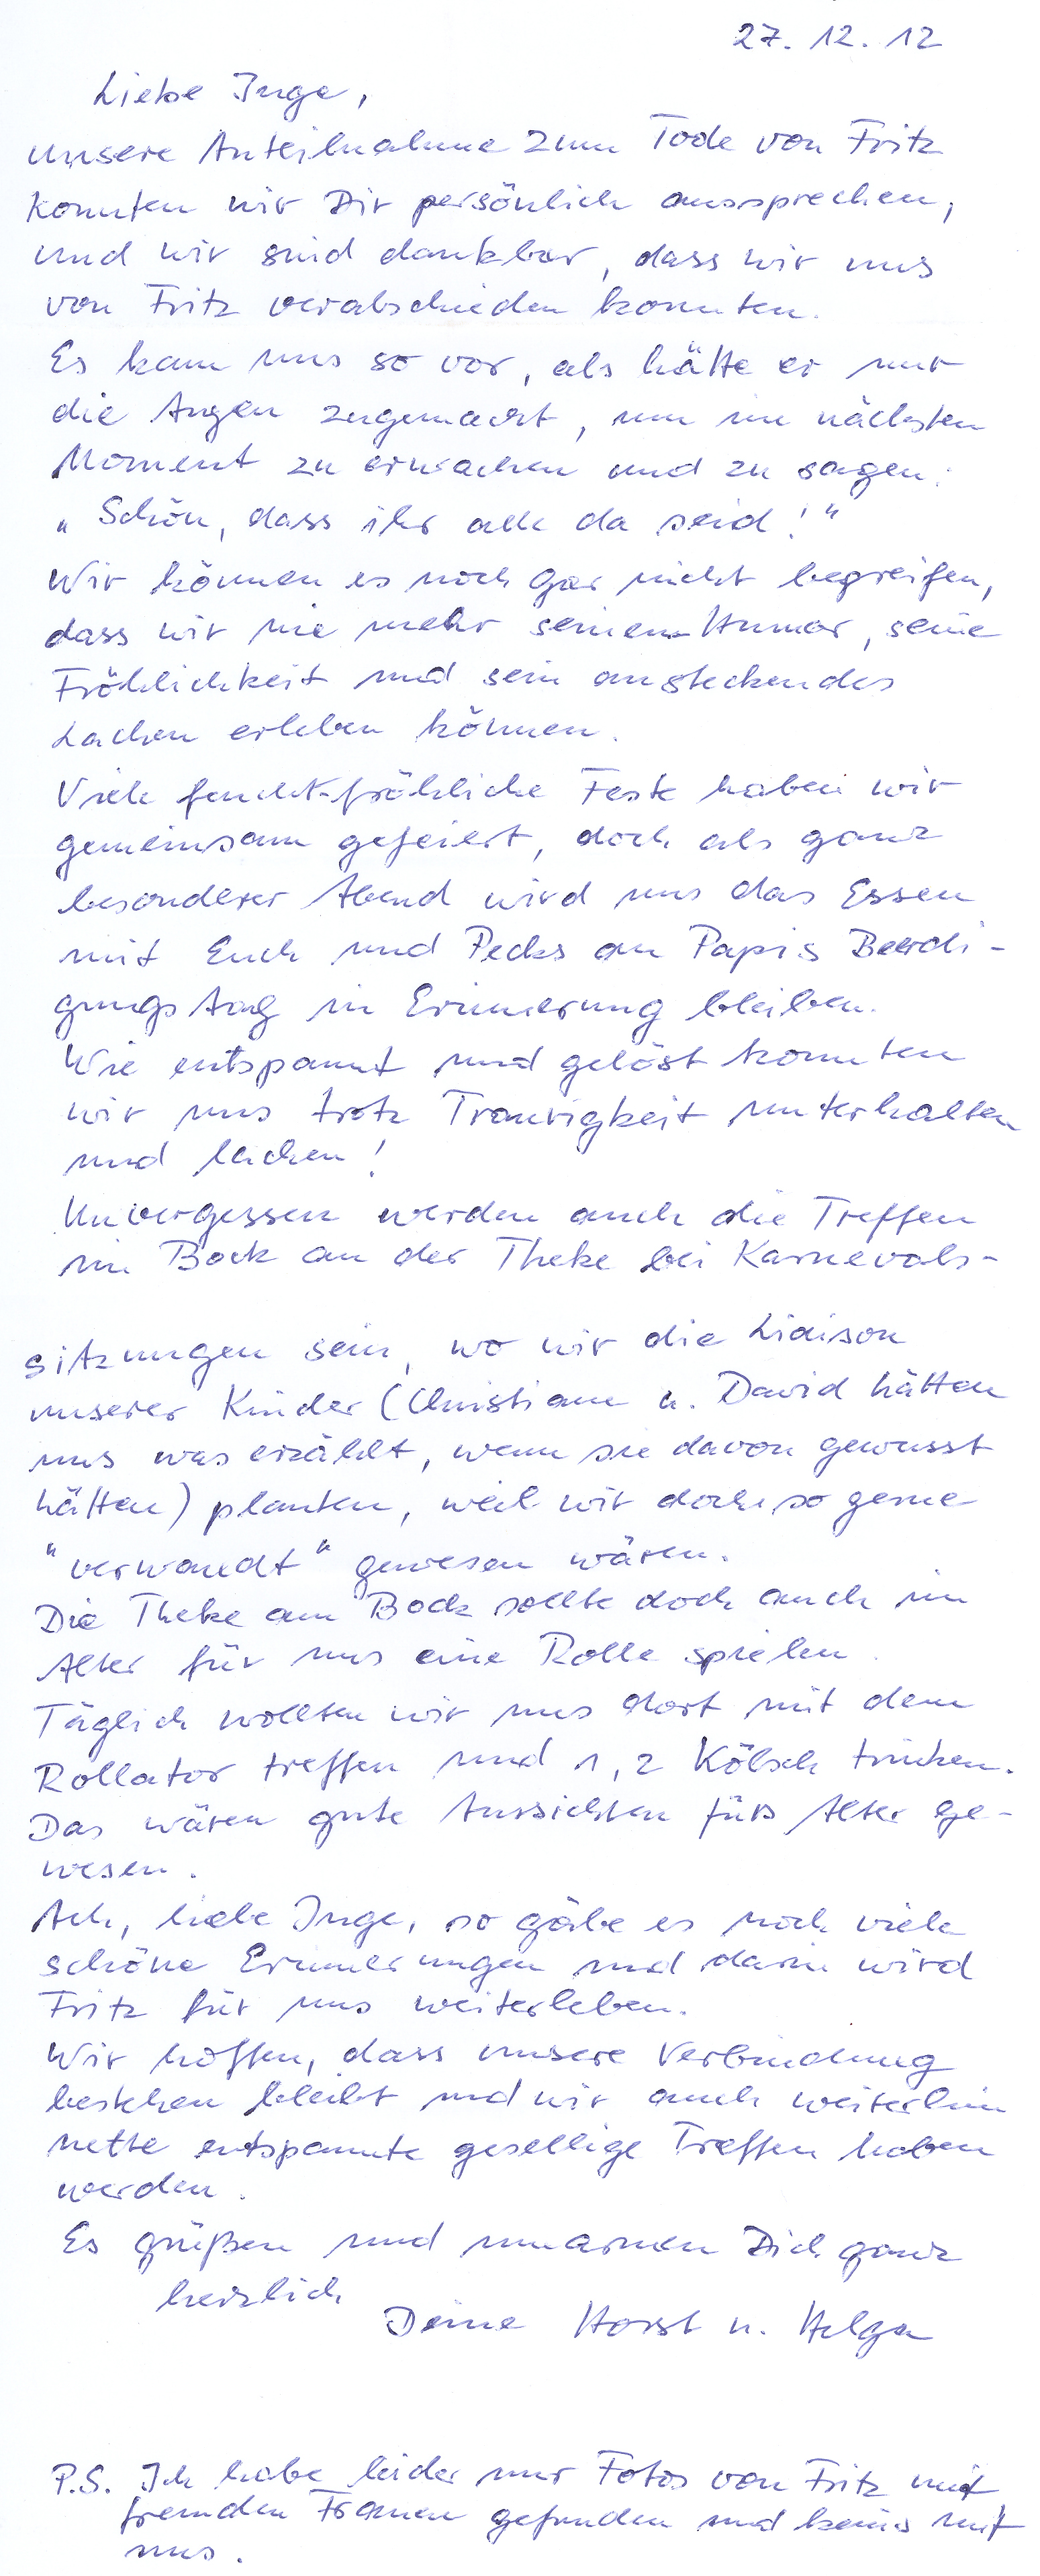 27. 12. 12
Liebe Inge,
unsere Anteilnahme zum Tode von Fritz
konnten wir Dir persönlich aussprechen,
und wir sind dankbar, dass wir uns
von Fritz verabschieden konnten.
Es kam uns so vor, als hätte er nur
die Augen zugemacht, um im nächsten
Moment zu erwachen und zu sagen:
„Schön, dass ihr alle da seid!"
Wir können es noch gar nicht begreifen,
dass wir nie mehr seinen Humor, seine
Fröhlichkeit und sein ansteckendes
Lachen erleben können.
Viele feucht-fröhliche Feste haben wir
gemeinsam gefeiert, doch als ganz
besonderer Abend wird uns das Essen
mit Euch und Pecks an Papis Beerdi-
gungstag in Erinnerung bleiben.
Wie entspannt und gelöst konnten
wir uns trotz Traurigkeit unterhalten
und lachen!
Unvergessen werden auch die Treffen
im Bock an der Theke bei Karnevals-
sitzungen sein, wo wir die Liaison
unserer Kinder (Christiane u. David hätten
uns was erzählt, wenn sie davon gewusst
hätten) planten, weil wir doch so gerne
"verwandt" gewesen wären.
Die Theke am Bock sollte doch auch im
Alter für uns eine Rolle spielen.
Täglich wollten wir uns dort mit dem
Rollator treffen und 1,2 Kölsch trinken.
Das wären gute Aussichten fürs Alter ge-
wesen.
Ach, liebe Inge, so gäbe es noch viele
schöne Erinnerungen und darin wird
Fritz für uns weiterleben.
Wir hoffen, dass unsere Verbindung
bestehen bleibt und wir auch weiterhin
nette entspannte gesellige Treffen haben
werden.
Es grüßen und umarmen Dich ganz
herzlich
Deine Horst u. Helga
P.S. Ich habe leider nur Fotos von Fritz mit
fremden Frauen gefunden und keins mit
uns.